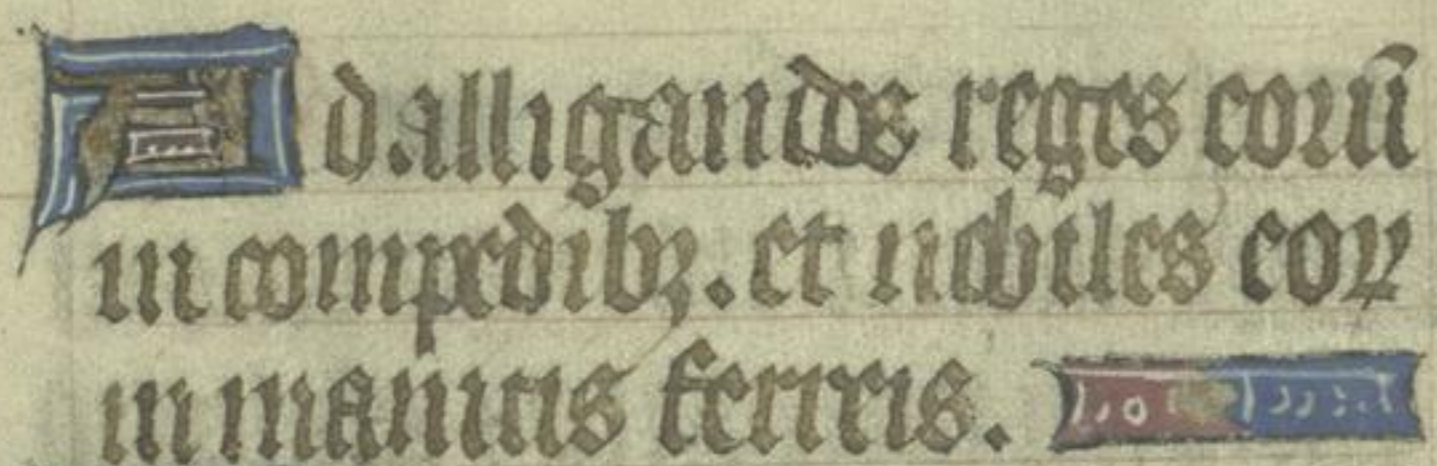 Ad alligandos reges eorū
in compedibꝫ. et nobiles eoꝝ
in manicis ferreis.